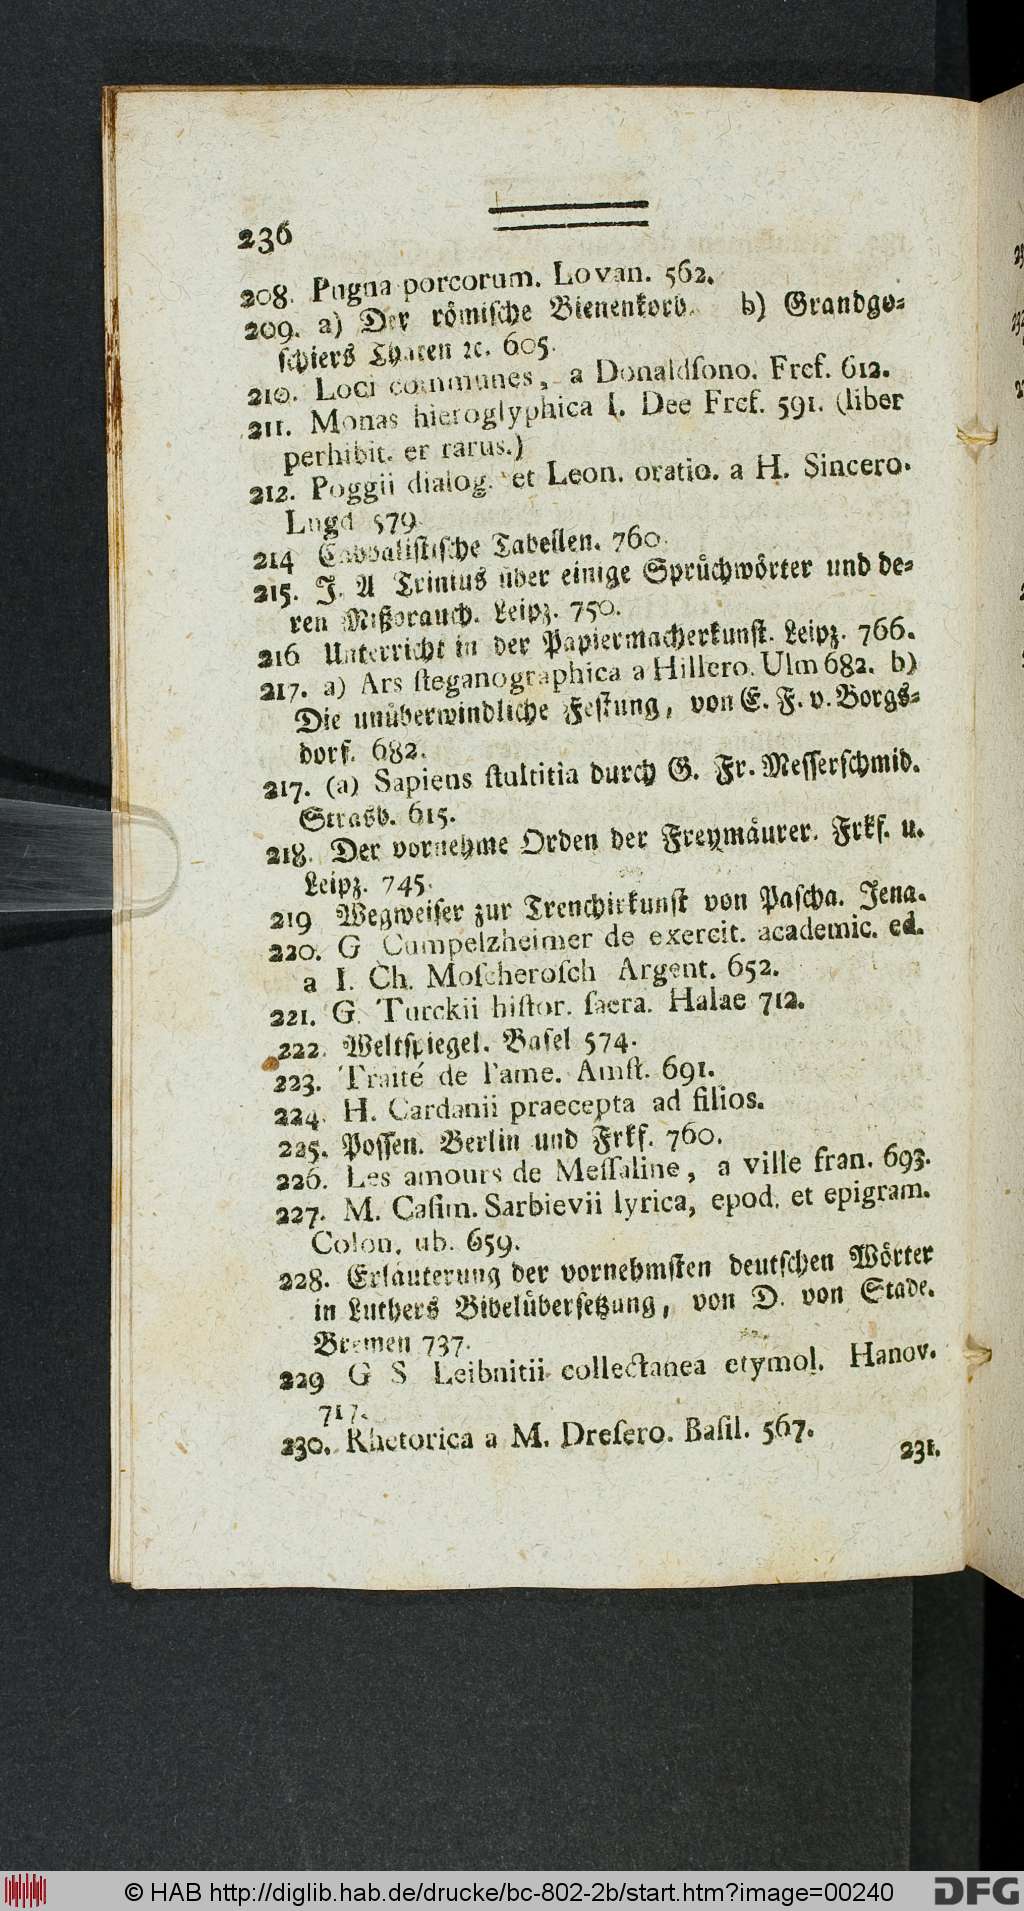 236
208. Pugna porcorum. Lovan. 562.
209. a) Der römiſche Bienenkorb. b) Grandgo⸗
ſchiers Thaten ꝛc. 605.
210. Loci communes, a Donaldſono. Frcf. 612.
211. Monas hieroglyphica I. Dee Frcf. 591. (liber
perhibit. er rarus.)
212. Poggii dialog. et Leon. oratio. a H. Sincero.
Lugd 579.
214 Cabbaliſtiſche Tabellen. 760.
215. J. A Trinius über einige Sprüchwörter und de⸗
ren Mißbrauch. Leipz. 750.
216 Unterricht in der Papiermacherkunſt. Leipz. 766.
217. a) Ars ſteganographica a Hillero. Ulm 682. b)
Die unüberwindliche Feſtung, von E. F. v. Borgs⸗
dorf. 682.
217. (a) Sapiens ſtultitia durch G. Fr. Meſſerſchmid.
Strasb. 615.
218. Der vornehme Orden der Freymäurer. Frkf. u.
Leipz. 745.
219 Wegweiſer zur Trenchirkunſt von Paſcha. Jena.
220. G Cumpelzheimer de exercit. academic. ed.
a I. Ch. Moſcheroſch Argent. 652.
221. G. Turckii hiſtor. ſacra. Halae 712.
222. Weltſpiegel. Baſel 574.
223. Traité de l'ame. Amſt. 691.
224. H. Cardanii praecepta ad filios.
225. Poſſen. Berlin und Frkf. 760.
226. Les amours de Meſſaline, a ville fran. 693.
227. M. Caſim. Sarbievii lyrica, epod. et epigram.
Colon. ub. 659.
228. Erläuterung der vornehmſten deutſchen Wörter
in Luthers Bibelüberſetzung, von D. von Stade.
Bremen 737.
229 G S Leibnitii collectanea etymol. Hanov.
717.
230. Rhetorica a M. Dreſero. Baſil. 567.
231.
© HAB http://diglib.hab.de/drucke/bc-802-2b/start.htm?image=00240
DFG